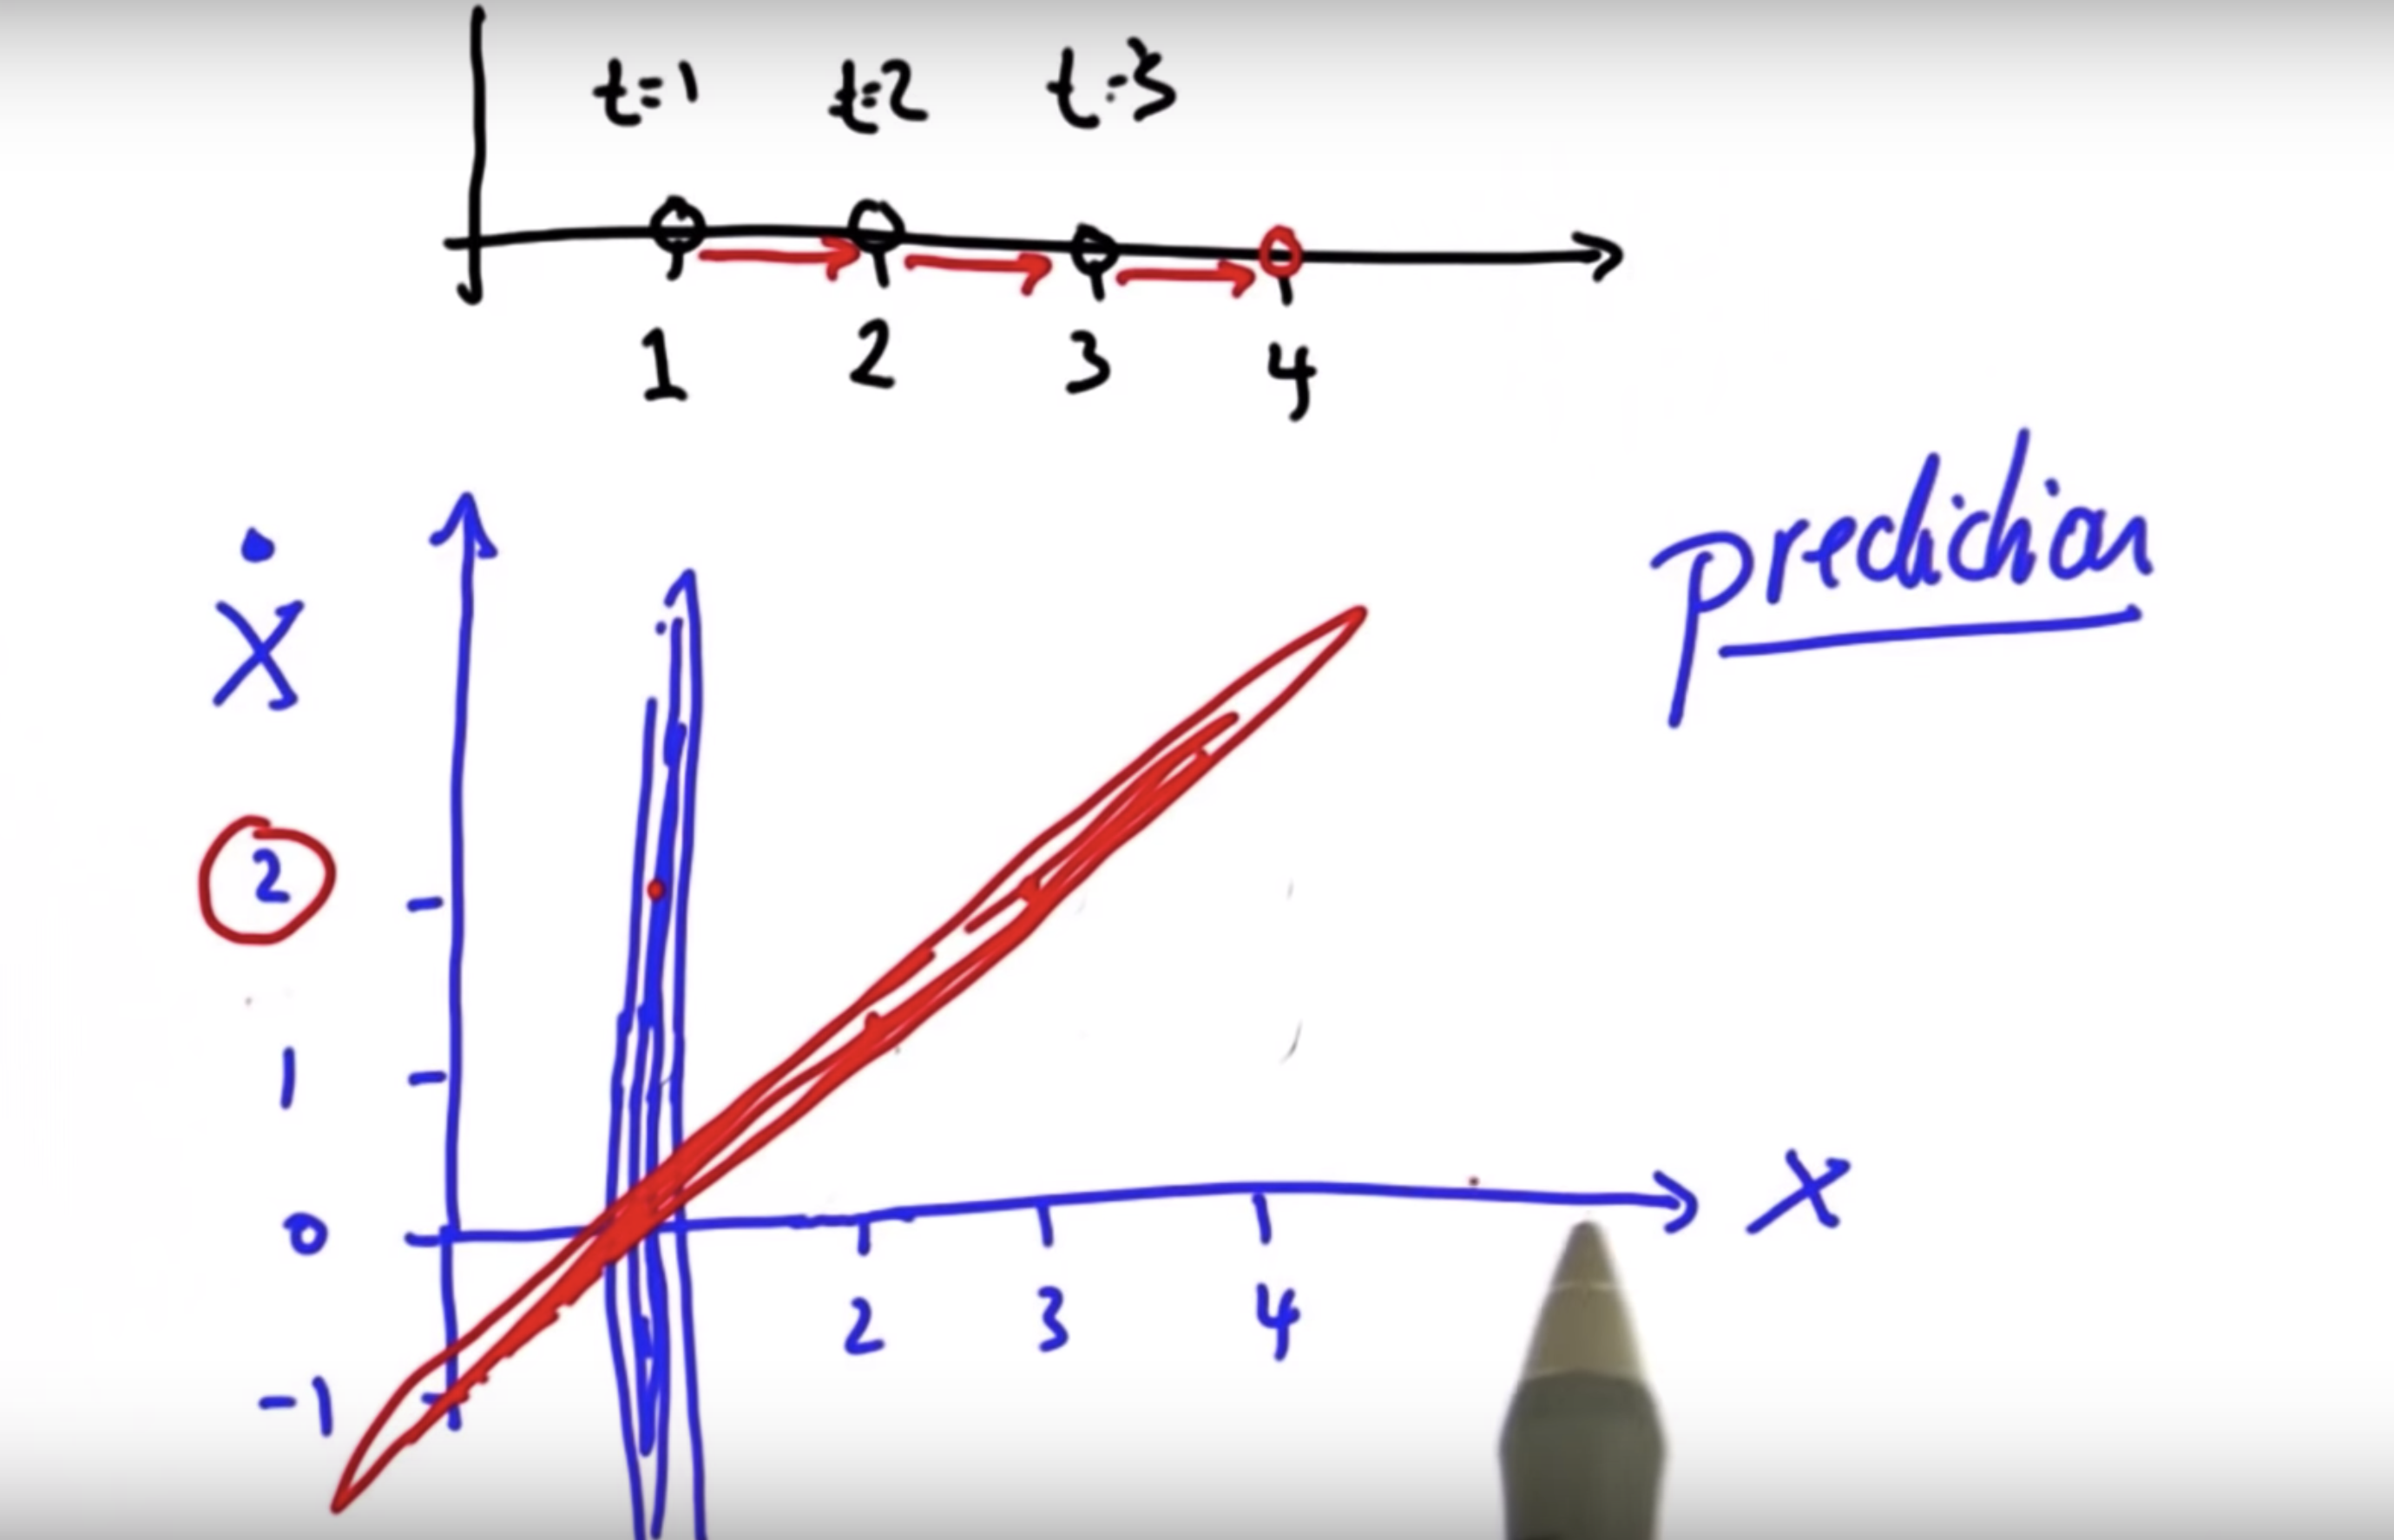 t=1 t=2 t=3
1 2 3 4
prediction
ẋ
2
1
0
x
2 3 4
-1